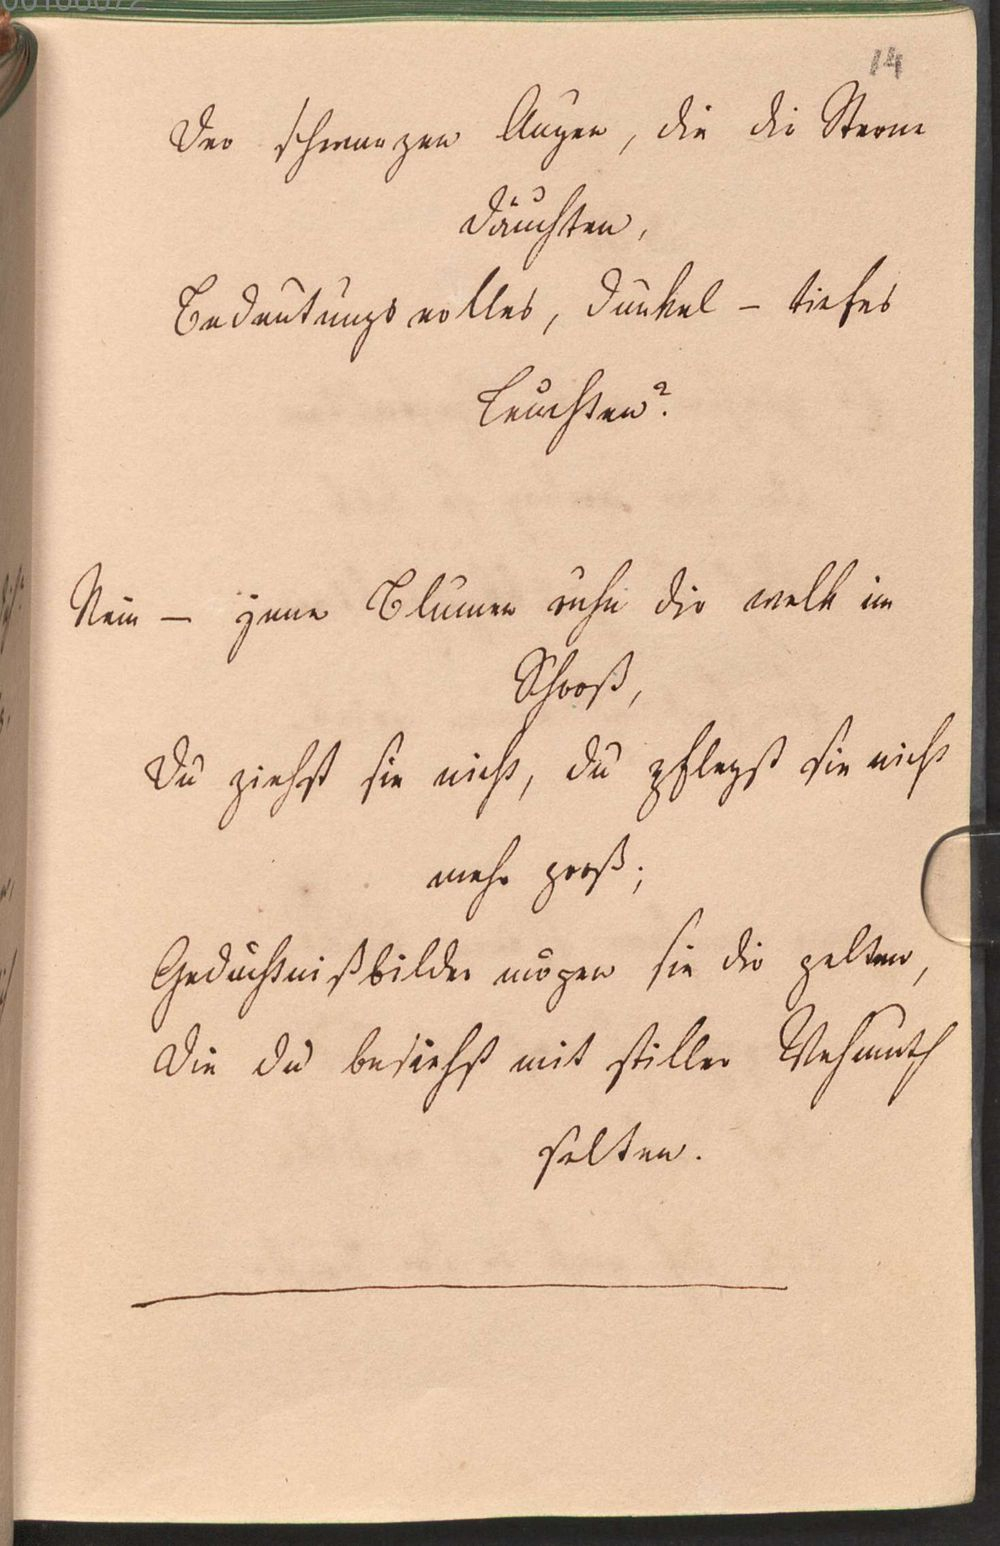 00108072
14
Der schwarzen Augen, die dir Sterne
däuchten,
Bedeutungsvolles, dunkel - tiefes
Leuchten?
Nein — jene Blumen ruhn dir welk im
Schooß,
Du ziehst sie nicht, du pflegst sie nicht
mehr groß;
Gedächtnißbilder mögen sie dir gelten,
Die du besiehst mit stiller Wehmuth
selten.